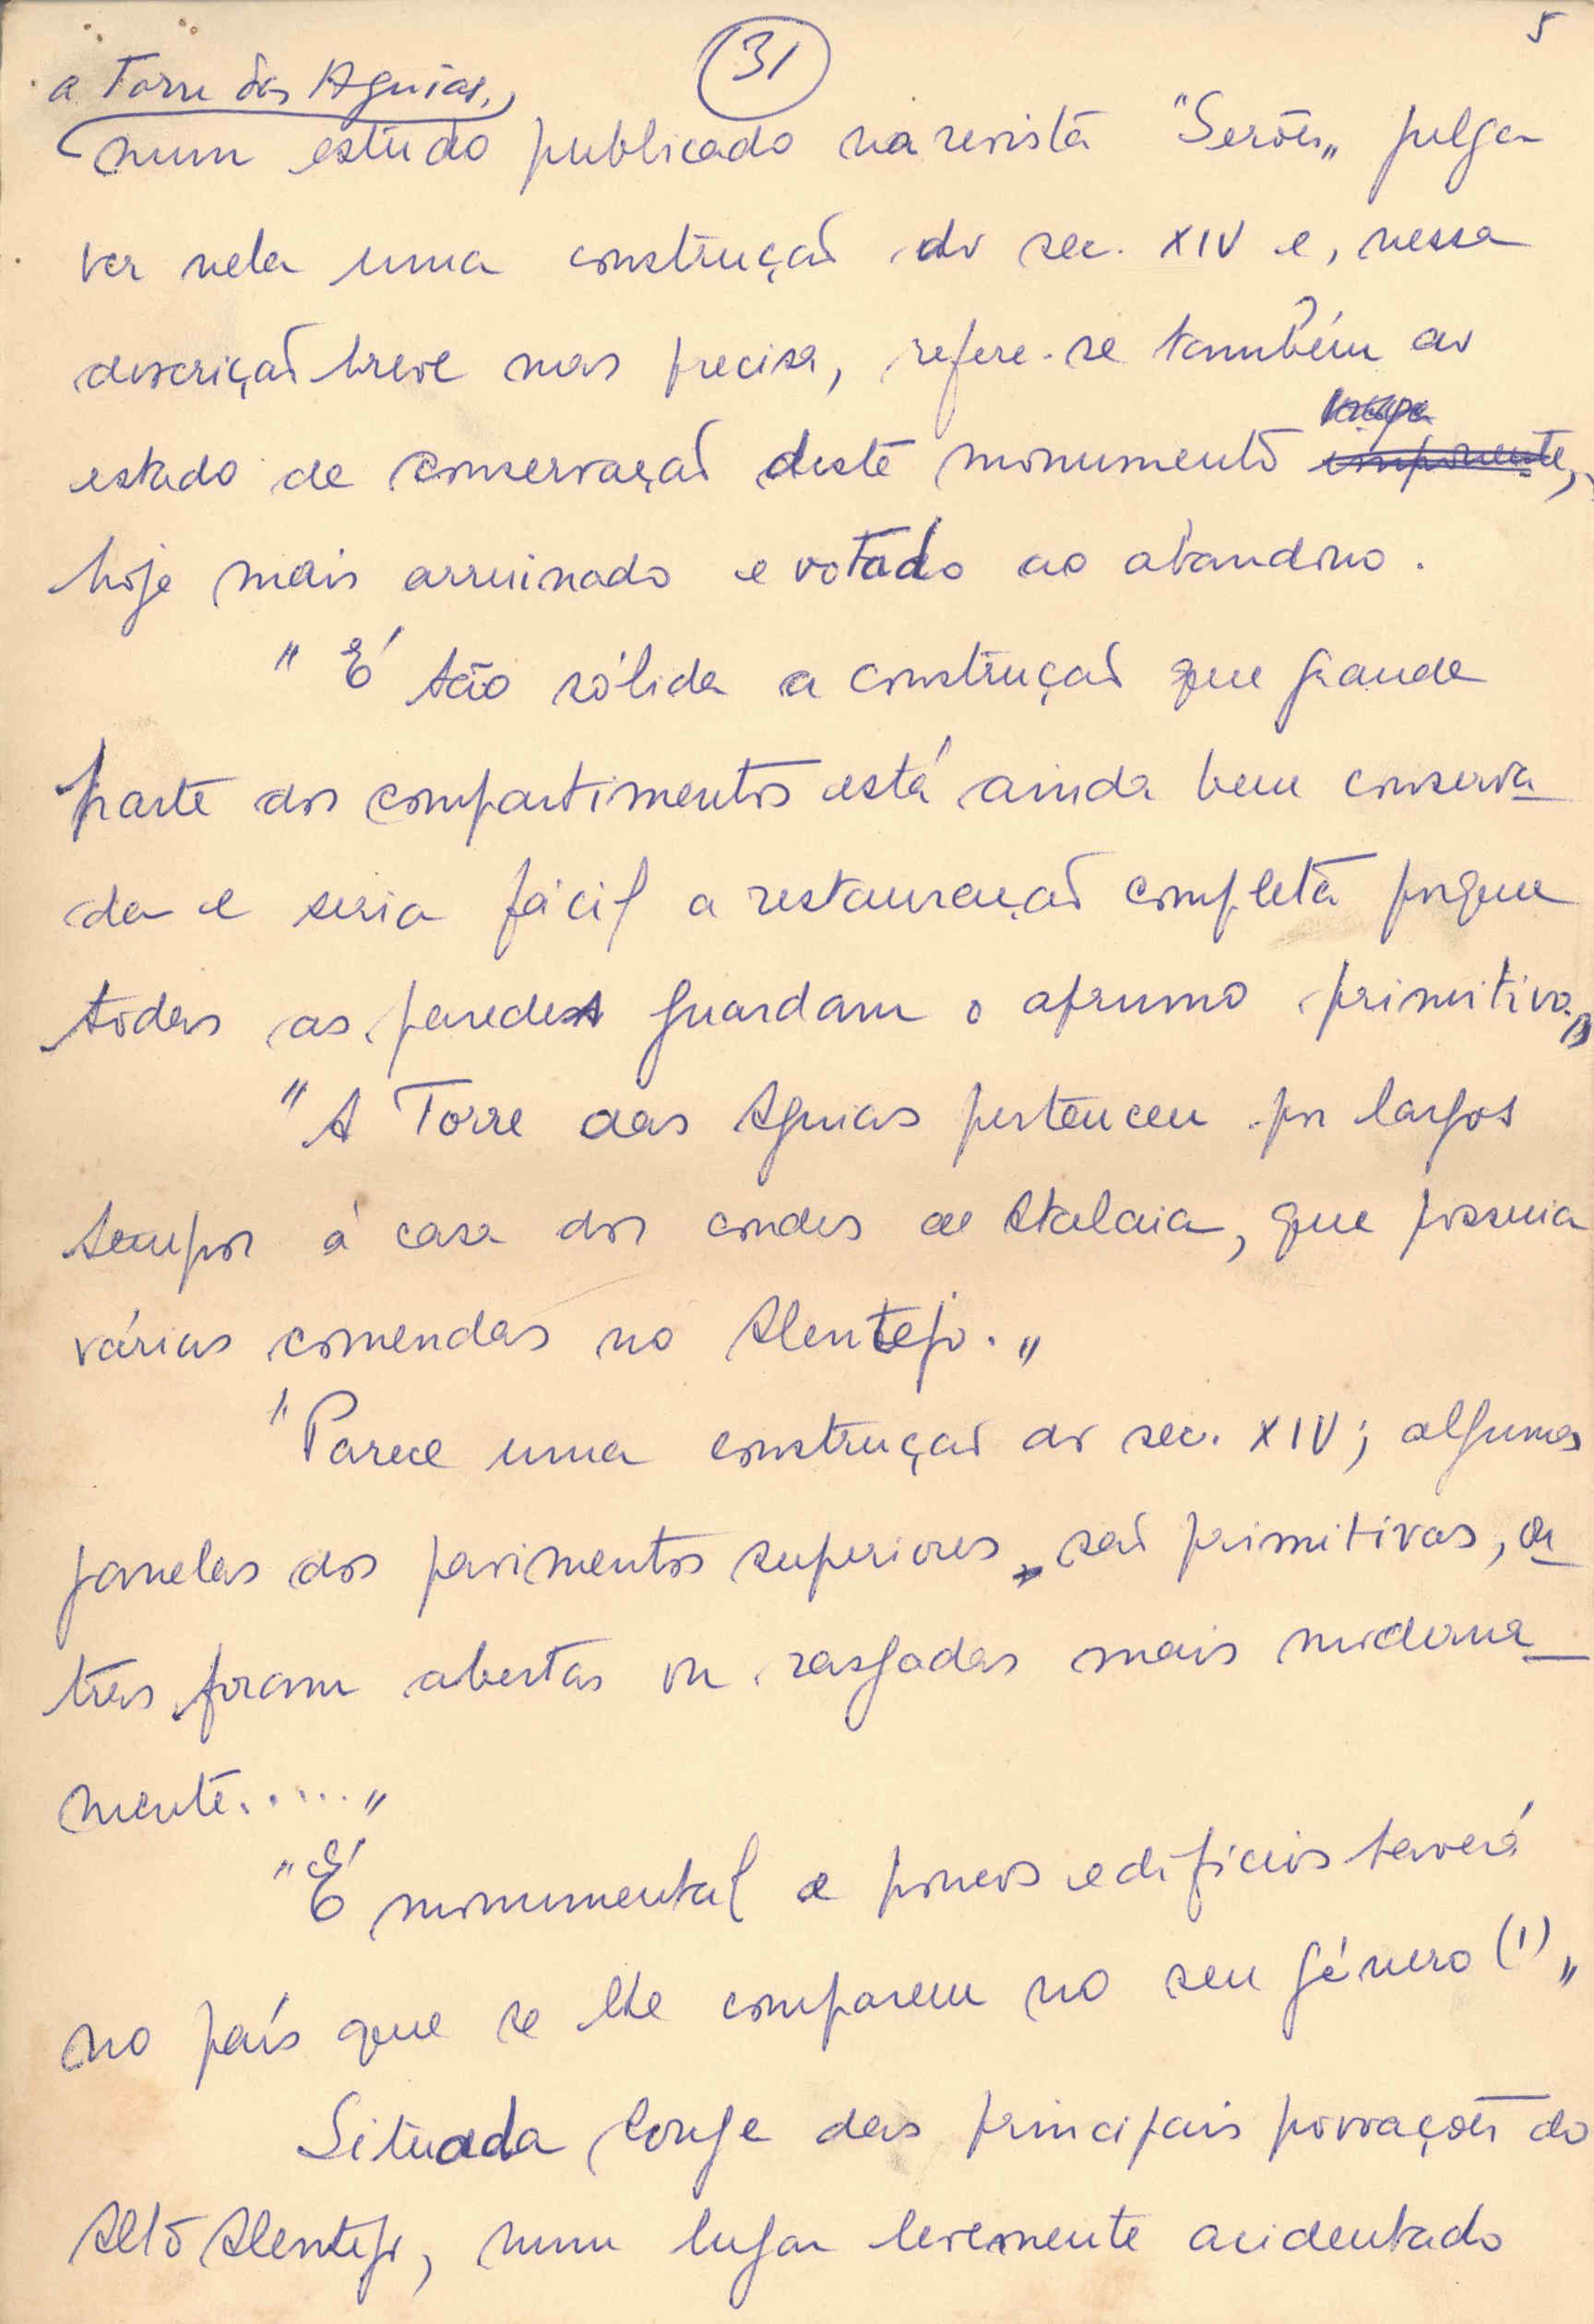 5
31
a Torre das Aguias,
num estudo publicado na revista "Serões" julga
ver nela uma construção do sec. XIV e, nessa
descrição breve mas precisa, refere-se também ao
estado de conservação deste monumento imponente,
hoje mais arruinado e votado ao abandono.
"É tão sólida a construção que grande
parte dos compartimentos está ainda bem conserva-
da e seria fácil a restauração completa porque
todas as paredes guardam o aprumo primitivo."
"A Torre das Aguias pertenceu por largos
tempos à casa dos condes de Atalaia, que possuia
várias comendas no Alentejo."
"Parece uma construção do sec. XIV; algumas
janelas dos pavimentos superiores, são primitivas, ou
tras foram abertas ou rasgadas mais moderna-
mente....."
"É monumental e poucos edificios haverá
no país que se lhe comparem no seu género (1)"
Situada longe das principais povoações do
Alto Alentejo, num lugar levemente acidentado